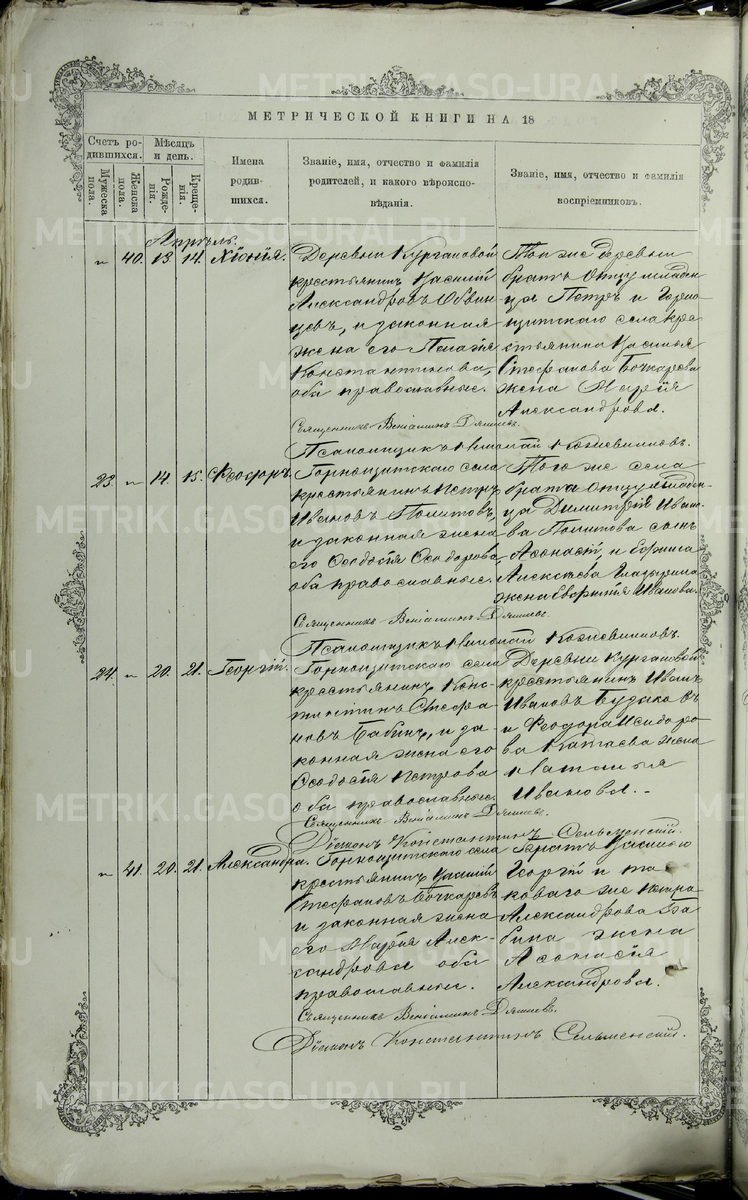 МЕТРИЧЕСКОЙ КНИГИ НА 18
Счетъ ро-
дившихся.
Мѣсяцъ
и день.
Мужеска
пола.
Женска
пола.
Рожде-
нія.
Креще-
нія.
Имена
родив-
шихся.
Званіе, имя, отчество и фамилія
родителей, и какого вѣроиспо-
вѣданія.
Званіе, имя, отчество и фамилія
воспріемниковъ.
Апрѣль.
" 40. 13. 14. Хіонія.
Деревни Кургановой
крестьянинъ Василій
Александровъ Обвин
цевъ, и законная
жена его Пелагія
Константинова,
оба православные.
Той же деревни
братъ отцу младен
ца Петръ и Горно
щитскаго села кре
стьянина Василья
Стефанова Бочкарева
жена Марія
Александрова.
Священникъ Веніаминъ
Псаломщикъ Николай Кожевниковъ.
23. " 14. 15. Ѳеодоръ.
Горнощитскаго села
крестьянинъ Петръ
Ивановъ Политовъ,
и законная жена
его Ѳеодосія Ѳеодорова
оба православные.
Того же села
брата отцу младен
ца Димитрія Ивано
ва Политова сынъ
и
Алексѣева
жена Иванова.
Священникъ Веніаминъ
Псаломщикъ Николай Кожевниковъ.
24. " 20. 21. Георгій.
Горнощитскаго села
крестьянинъ Конс-
тантинъ Стефа
новъ Бабинъ, и за-
конная жена его
Ѳеодосія Петрова
оба православные.
Деревни Кургановой
крестьянинъ Иванъ
Ивановъ
и Ѳеодора Исидоро
ва Катаева жена
Наталья
Иванова.
Священникъ Веніаминъ
Діаконъ Константинъ Сельменскій.
" 41. 20. 21. Александра.
Горнощитскаго села
крестьянинъ Василій
Стефановъ Бочкаревъ
и законная жена
его Марія Алек-
сандрова оба
православные.
Братъ Василью
Георгій и та
коваго же Петра
Александрова Ба
бина жена
Аѳанасія
Александрова.
Священникъ Веніаминъ
Діаконъ Константинъ Сельменскій.
METRIKI.GASO-URAL.RU